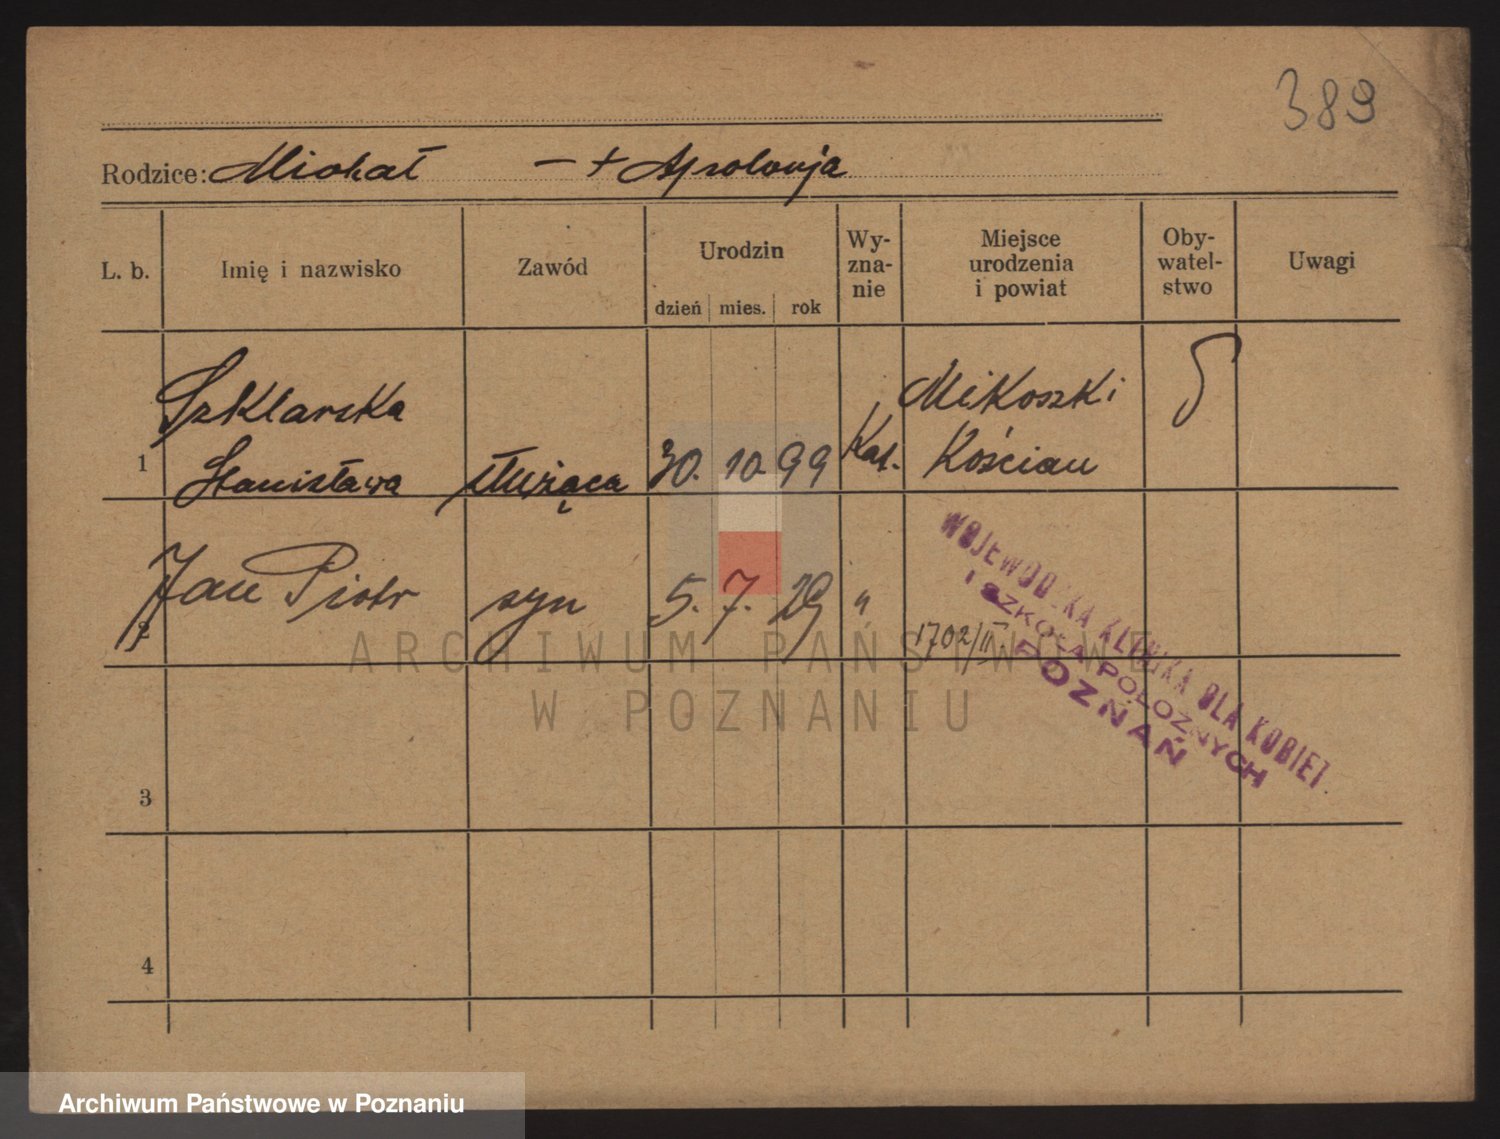 389
Rodzice: Michał — + Apolonja
L. b.
Imię i nazwisko
Zawód
Urodzin
dzień mies. rok
Wy-
zna-
nie
Miejsce
urodzenia
i powiat
Oby-
watel-
stwo
Uwagi
1
Szklarska
Stanisława
służąca
30. 10. 99
Kat.
Mikoszki
Kościan
2
Jan Piotr
syn
5. 7. 29
"
1702/II
WOJEWÓDZKA KLINIKA DLA KOBIET
I SZKOŁA POŁOŻNYCH
POZNAŃ
ARCHIWUM PAŃSTWOWE
W POZNANIU
3
4
Archiwum Państwowe w Poznaniu